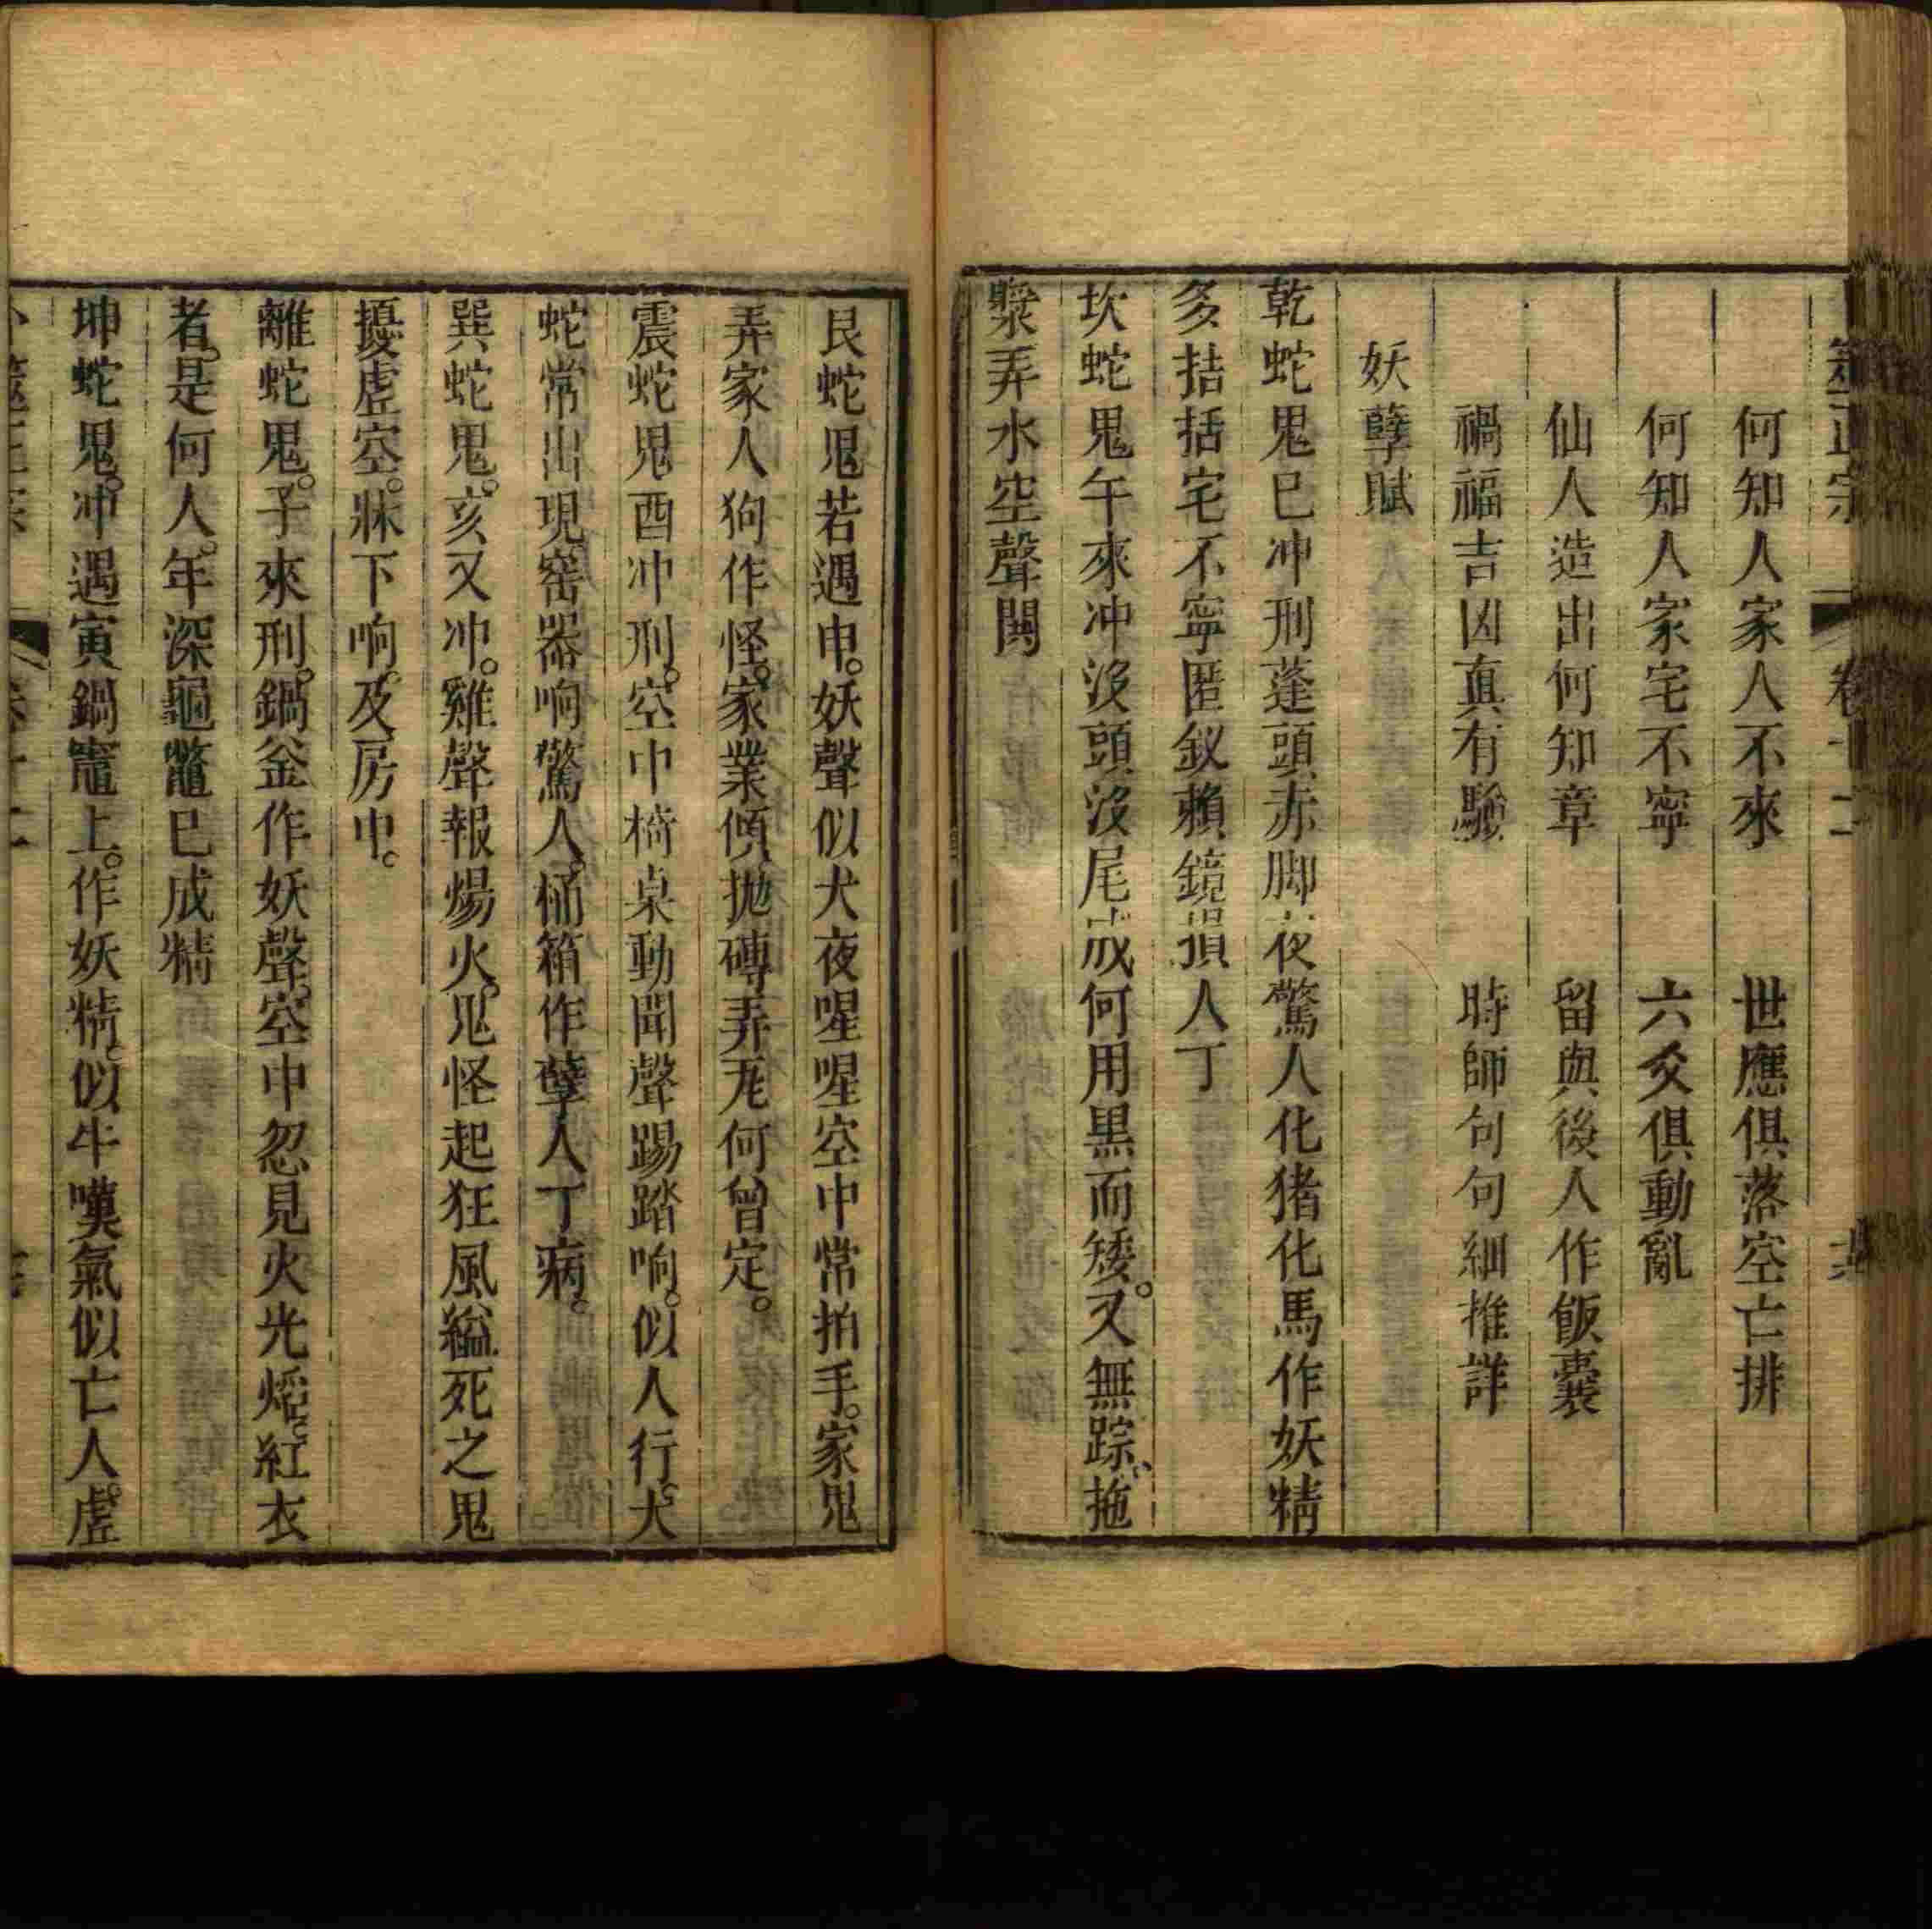 筮正宗 卷十二
何知人家人不來 世應俱落空亡排
何知人家宅不寧 六爻俱動亂
仙人造出何知章 留與後人作飯囊
禍福吉凶眞有驗 時師句句細推詳
妖孽賦
乾蛇鬼巳冲刑蓬頭赤脚夜驚人化猪化馬作妖精
多拮括宅不寧匿釵賴鏡損人丁
坎蛇鬼午來冲沒頭沒尾成何用黒而矮。又無踪、拖
槳弄水空聲閧
艮蛇鬼若遇申。妖聲似犬夜喤喤空中常拍手。家鬼
弄家人狗作怪。家業傾抛磚弄瓦何曾定。
震蛇鬼酉冲刑。空中椅桌動聞聲踢踏响。似人行。犬
蛇常出現窑器响驚人。桶箱作孽人丁病。
巽蛇鬼。亥又冲。雞聲報煬火。鬼怪起狂風縊死之鬼
擾虛空。牀下响。及房中。
離蛇鬼。子來刑。鍋釜作妖聲。空中忽見火光熖。紅衣
者。是何人。年深龜鼈巳成精
坤蛇鬼。冲遇寅鍋竈上。作妖精。似牛嘆氣似亡人。虛